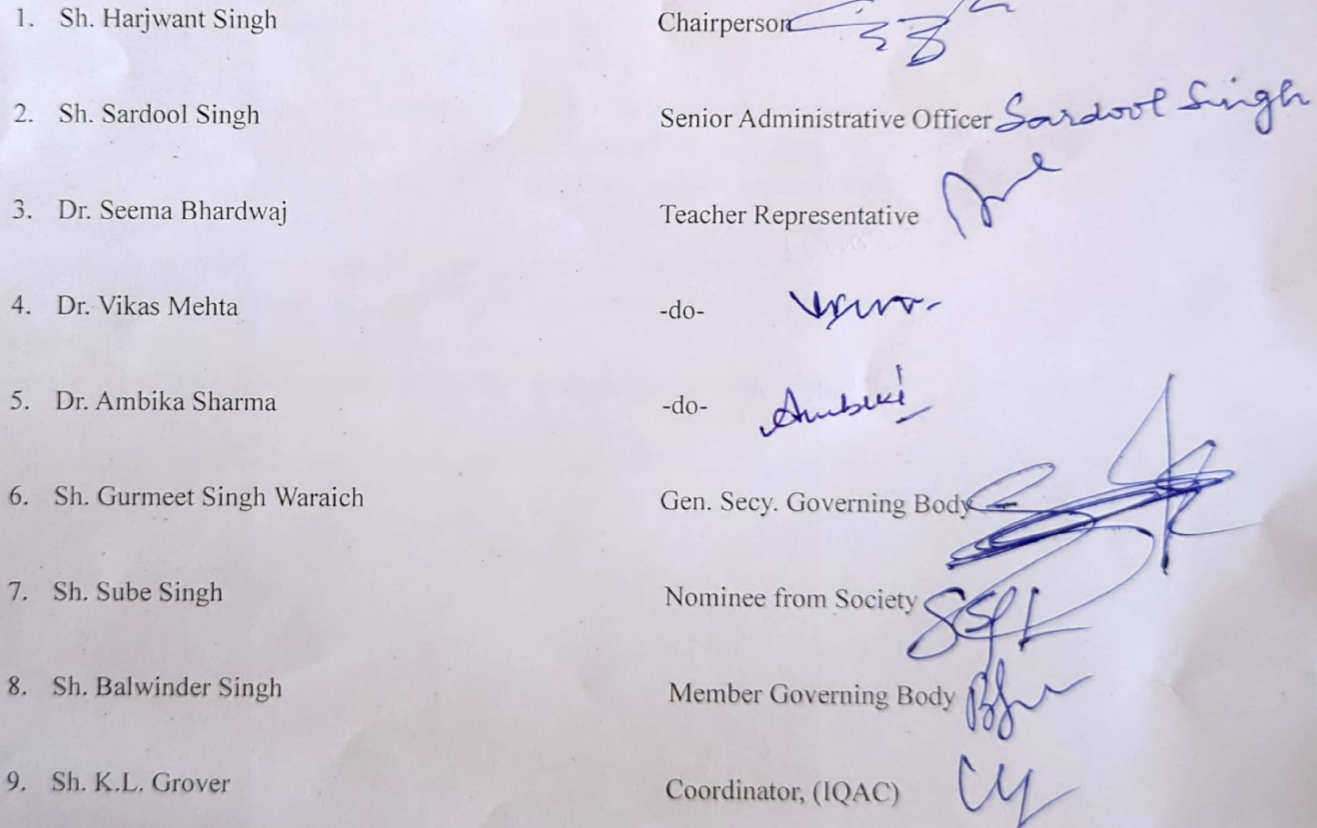 1. Sh. Harjwant Singh Chairperson
2. Sh. Sardool Singh Senior Administrative Officer Sardool Singh
3. Dr. Seema Bhardwaj Teacher Representative
4. Dr. Vikas Mehta -do-
5. Dr. Ambika Sharma -do-
6. Sh. Gurmeet Singh Waraich Gen. Secy. Governing Body
7. Sh. Sube Singh Nominee from Society
8. Sh. Balwinder Singh Member Governing Body
9. Sh. K.L. Grover Coordinator, (IQAC)